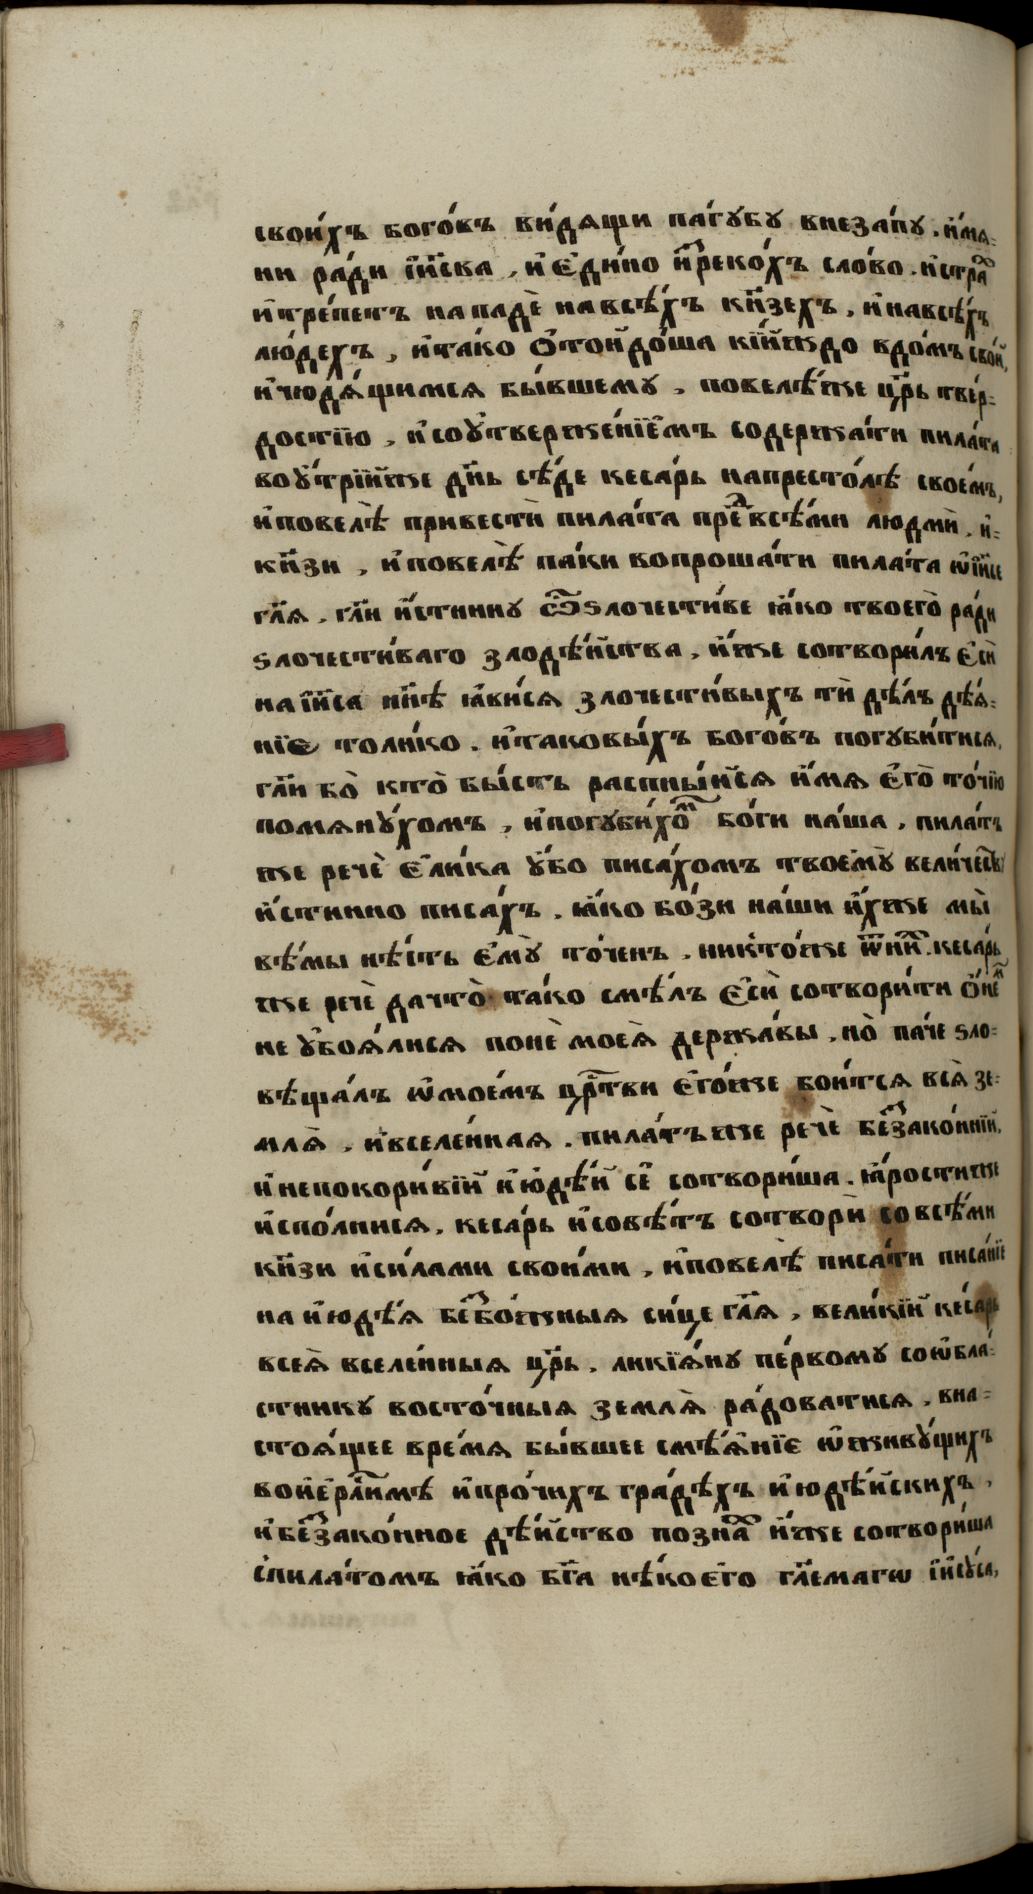 свои́хъ бого́въ ви́дѧщи па́гꙋбꙋ внеза́пꙋ. и҆́мѧ=
ни ра́ди і҆и҃сва, и҆ є҆ди́но и҆зреко́хъ сло́во. и҆стра́х
и҆тре́петъ нападѐ навсѣ́хъ кн҃зехъ, и҆навсѣ́хъ
лю́дехъ, и҆та́ко ѿтой до́ша кі́йждо вдо́мъ сво́й,
и҆чюдѧ́щимсѧ бы́вшемꙋ, повелѣ́же цр҃ь тве́р=
достїю, и҆соꙋ҆тверже́нїемъ содержа́ти пила́та
воꙋ҆́трїйже дн҃ь сѣ́де кеса́рь напресто́лѣ свое́мъ,
и҆повелѣ̀ привестѝ пила́та пред всѣ́ми людмѝ, и҆=
кн҃зи, и҆повелѣ̀ па́ки вопроша́ти пила́та ѡ҆і҆и҃сѣ
гл҃ѧ, гл҃и и҆́стиннꙋ ѽ ѕлочести́ве ꙗ҆́ко твоегѡ̀ ра́ди
ѕлочести́ваго злодѣ́йства, и҆́же сотвори́лъ є҆сѝ
на і҆и҃са нн҃ѣ ꙗ҆ви́сѧ злочести́выхъ тѝ дѣ́лъ дѣѧ́=
нїе толи́ко. и҆таковы́хъ бого́въ погꙋби́тисѧ,
гл҃и бо̀ кто̀ бы́сть распны́йсѧ и҆́мѧ є҆гѡ̀ то́чїю
помѧнꙋ́хомъ, и҆погꙋби́хом бо́ги на́ша, пила́тъ
же речѐ є҆ли́ка ꙋ҆́бо писа́хомъ твоемꙋ̀ вели́чествꙋ
и҆́стинно писа́хъ, ꙗ҆́ко бо́зи на́ши и҆́хже мы̀
вѣ́мы нѣ́сть є҆мꙋ̀ то́ченъ, никто́же ѿ них. кеса́рь
же речѐ дачто̀ та́ко смѣ́лъ є҆сѝ сотвори́ти ѡ҆ нем
не ꙋ҆боѧ́лисѧ понѐ моеѧ̀ держа́вы, но̀ па́че ѕло=
вѣща́лъ ѡ҆мое́мъ цр҃тви є҆го́же бои́тсѧ всѧ̀ зе=
млѧ̀, и҆вселе́ннаѧ. пила́тъже речѐ беззако́ннїи,
и҆непокори́вїи и҆юдѣ́и сѐ сотвори́ша. ꙗ҆́ростиже
и҆спо́лнисѧ, кеса́рь и҆совѣ́тъ сотворѝ совсѣ́ми
кн҃зи и҆си́лами свои́ми, и҆повелѣ̀ писа́ти писа́нїе
на и҆юдѣ́ѧ безбо́жныѧ си́це гл҃ѧ, вели́кїй кеса́рь
всеѧ̀ вселе́нныѧ цр҃ь, ликїѧ́нꙋ пе́рвомꙋ соѡ҆бла́=
стникꙋ восто́чныѧ землѧ̀ ра́доватисѧ, вна=
стоѧ́щее вре́мѧ бы́вшее смѣѧ́нїе ѡ҆живꙋ́щихъ
вои҆єр҃ли́мѣ и҆про́чихъ гра́дѣхъ и҆юдѣ́йскихъ,
и҆беззако́нное дѣ́йство позна́х и҆́же сотвори́ша
спила́томъ ꙗ҆́ко бг҃а нѣ́коего гл҃емагѡ і҆и҃сꙋ́са,